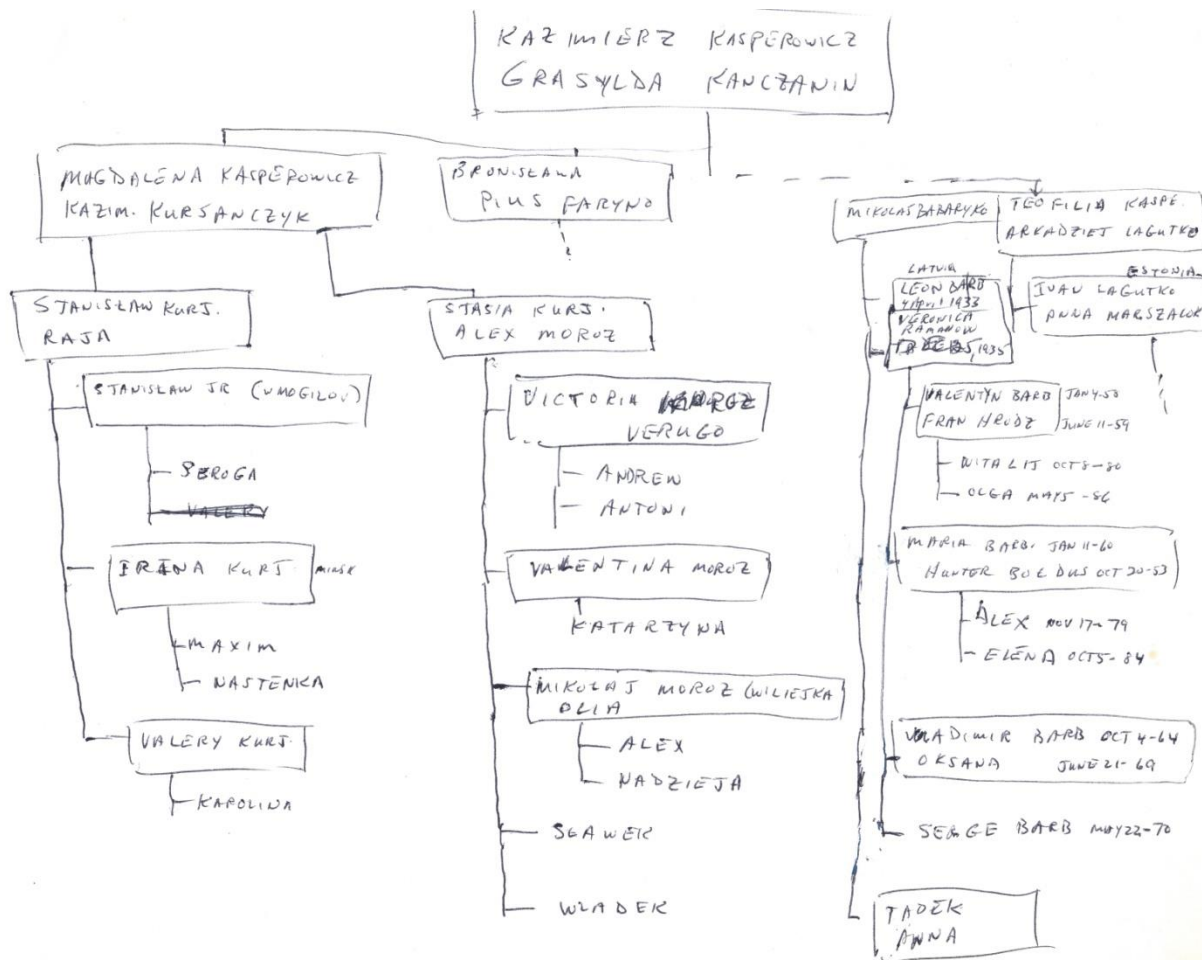 KAZIMIERZ KASPEROWICZ
GRASYLDA KANCZANIN
MAGDALENA KASPEROWICZ
KAZIM. KURSANCZYK
BRONISŁAWA
PIUS FARYNO
MIKOLAS BABARYKO
TEOFILIA KASPE.
ARKADZIET LAGUTKO
STANISŁAW KURJ.
RAJA
STANISŁAW JR (W MOGILOV)
SEROGA
VALERY
IRENA KURJ. MINSK
MAXIM
NASTENKA
VALERY KURJ.
KAROLINA
STASIA KURJ.
ALEX MOROZ
VICTORIA
VERUGO
ANDREW
ANTONI
VALENTINA MOROZ
KATARZYNA
MIKOŁAJ MOROZ (WILIEJKA
OLIA
ALEX
NADZIEJA
SŁAWEK
WŁADEK
LATVIA
LEON BARB
4 April 1933
VERONICA
RAMANOW
1935
ESTONIA
IVAN LAGUTKO
ANNA MARSZALOK
VALENTYN BARB JAN 4-58
FRAN HRUDZ JUNE 11-59
WITALIJ OCT 8-80
OLGA MAY 5-86
MARIA BARB. JAN 11-60
HUNTER BOLDUS OCT 20-53
ALEX NOV 17-79
ELENA OCT 5-84
VLADIMIR BARB OCT 4-64
OKSANA JUNE 21-69
SERGE BARB MAY 22-70
TADEK
ANNA